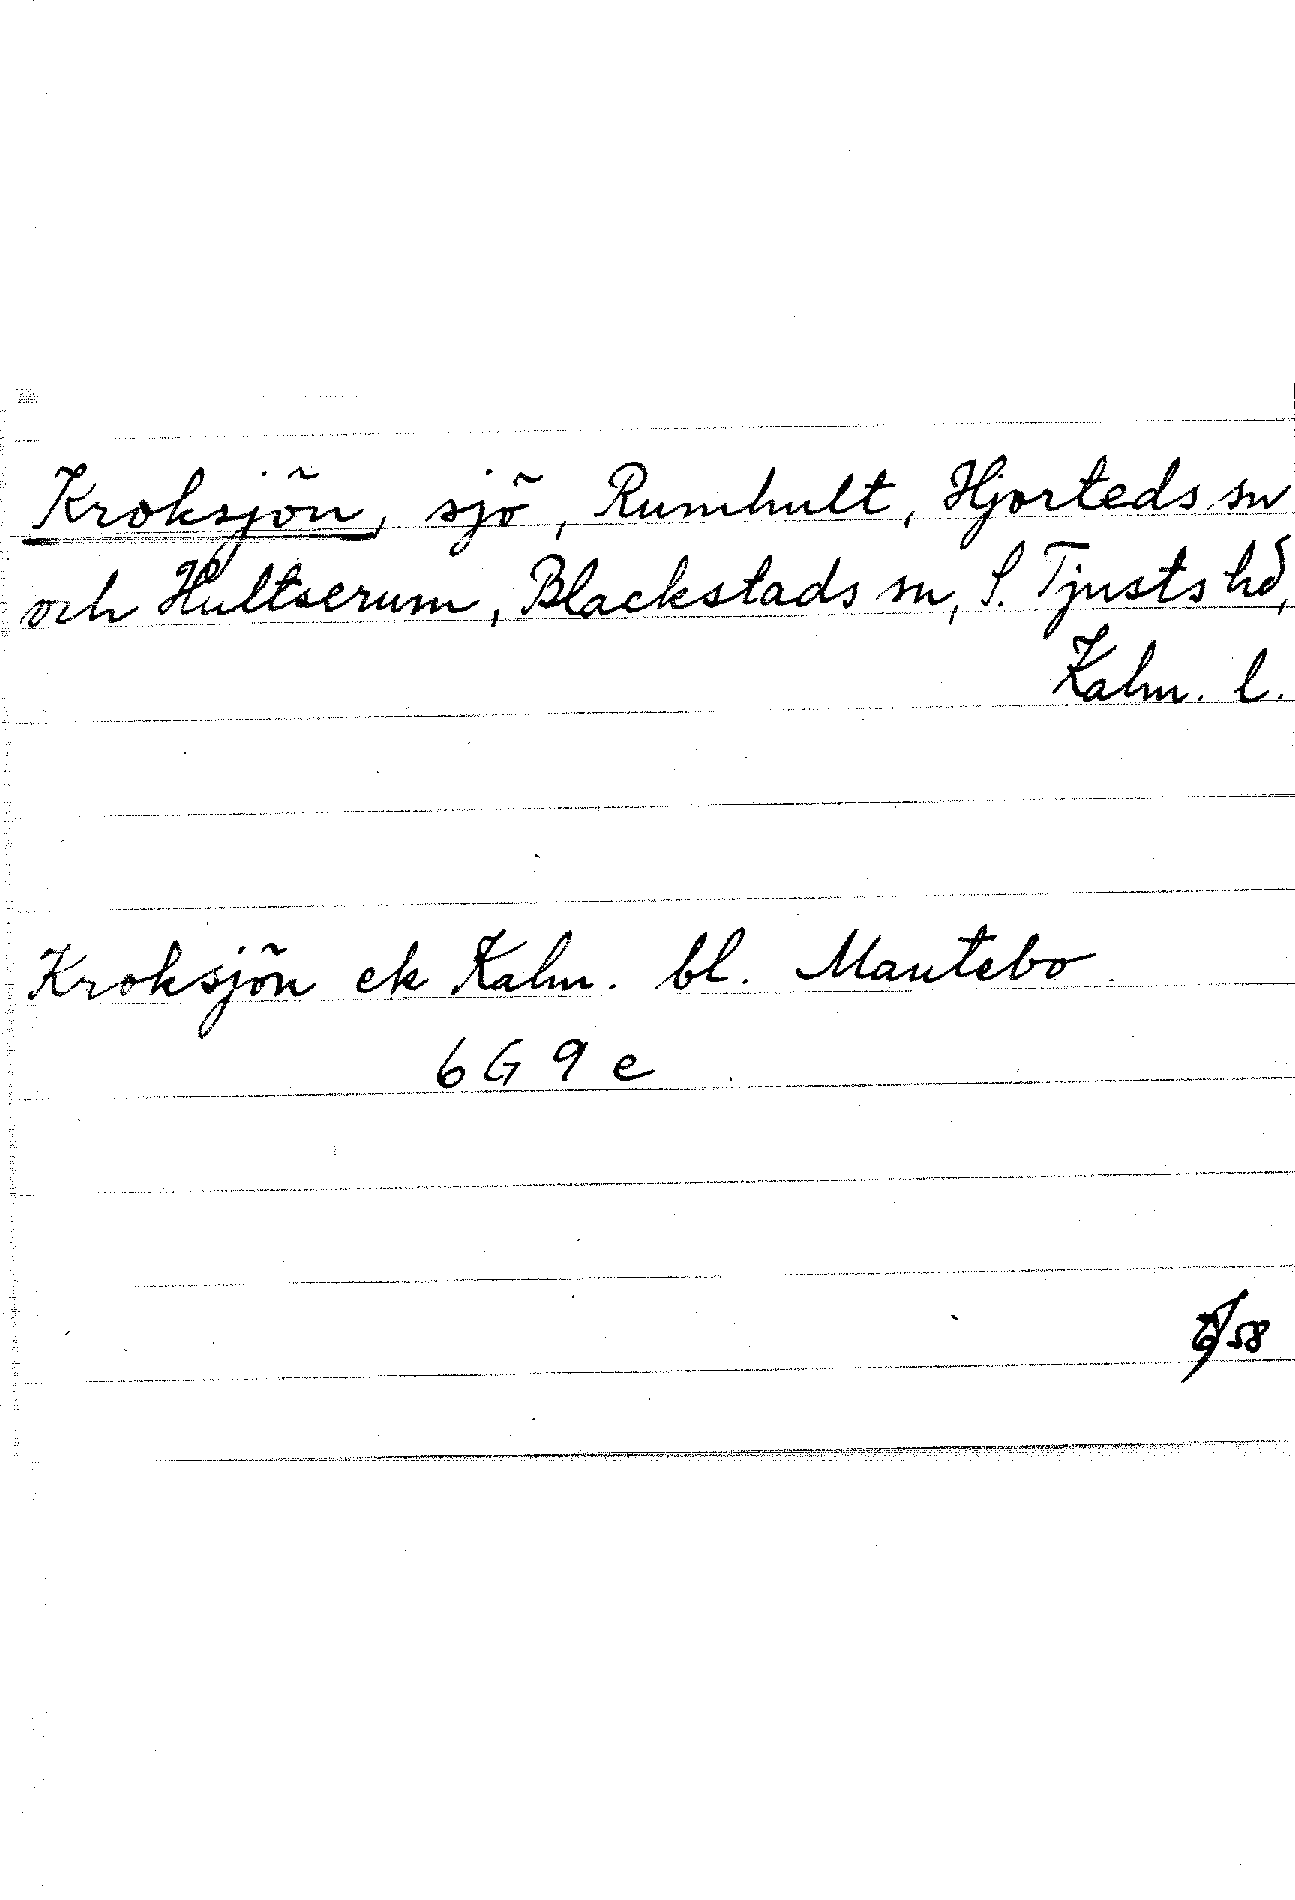 Kroksjön, sjö, Rumhult, Hjorteds sn
och Hultserum, Blackstads sn, S. Tjusts hd,
Kalm. l.
Kroksjön ek Kalm. bl. Mantebo
6G 9 e
/58